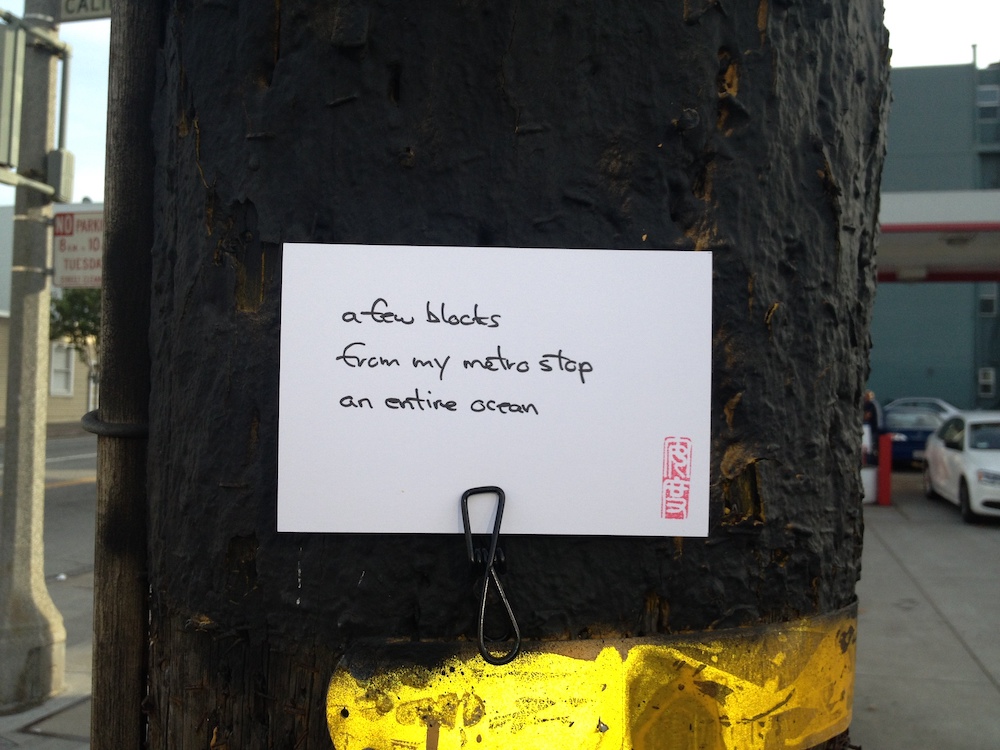 CALI
NO PARKI
8AM-10
TUESDA
a few blocks
from my metro stop
an entire ocean